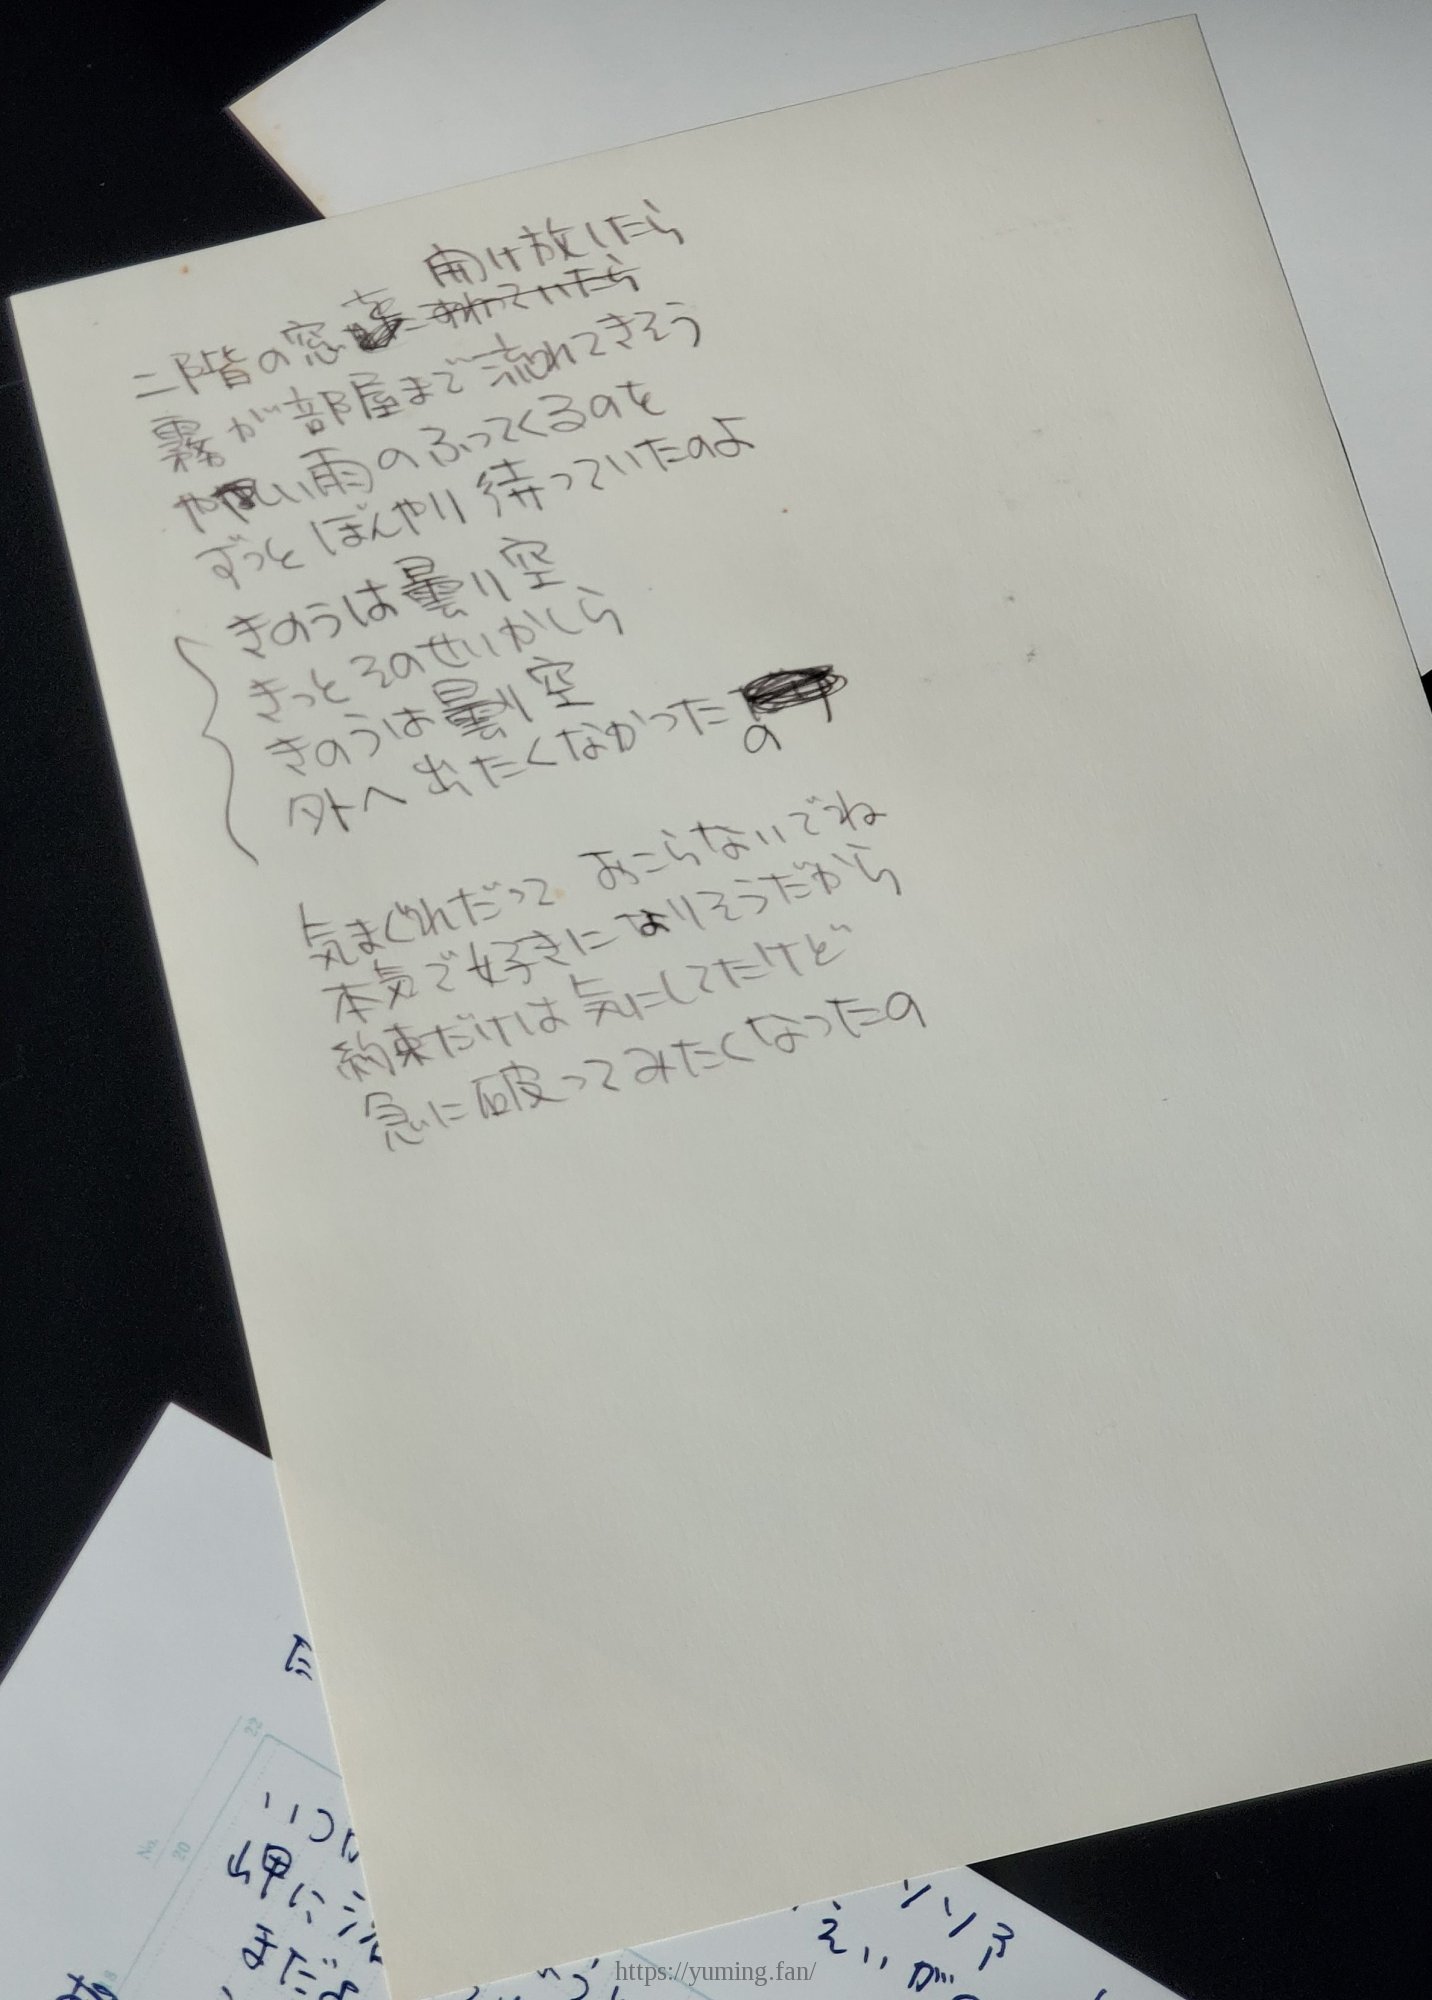 開け放したら
二階の窓を にもたれていたら
霧が部屋まで流れてきそう
やさしい雨のふってくるのを
ずっとぼんやり待っていたのよ
きのうは曇り空
きっとそのせいかしら
きのうは曇り空
外へ出たくなかった
の
気まぐれだって おこらないでね
本気で好きになりそうだから
約束だけは気にしてたけど
急に破ってみたくなったの
た
22
No.
20
押に
まだ
https://yuming.fan/